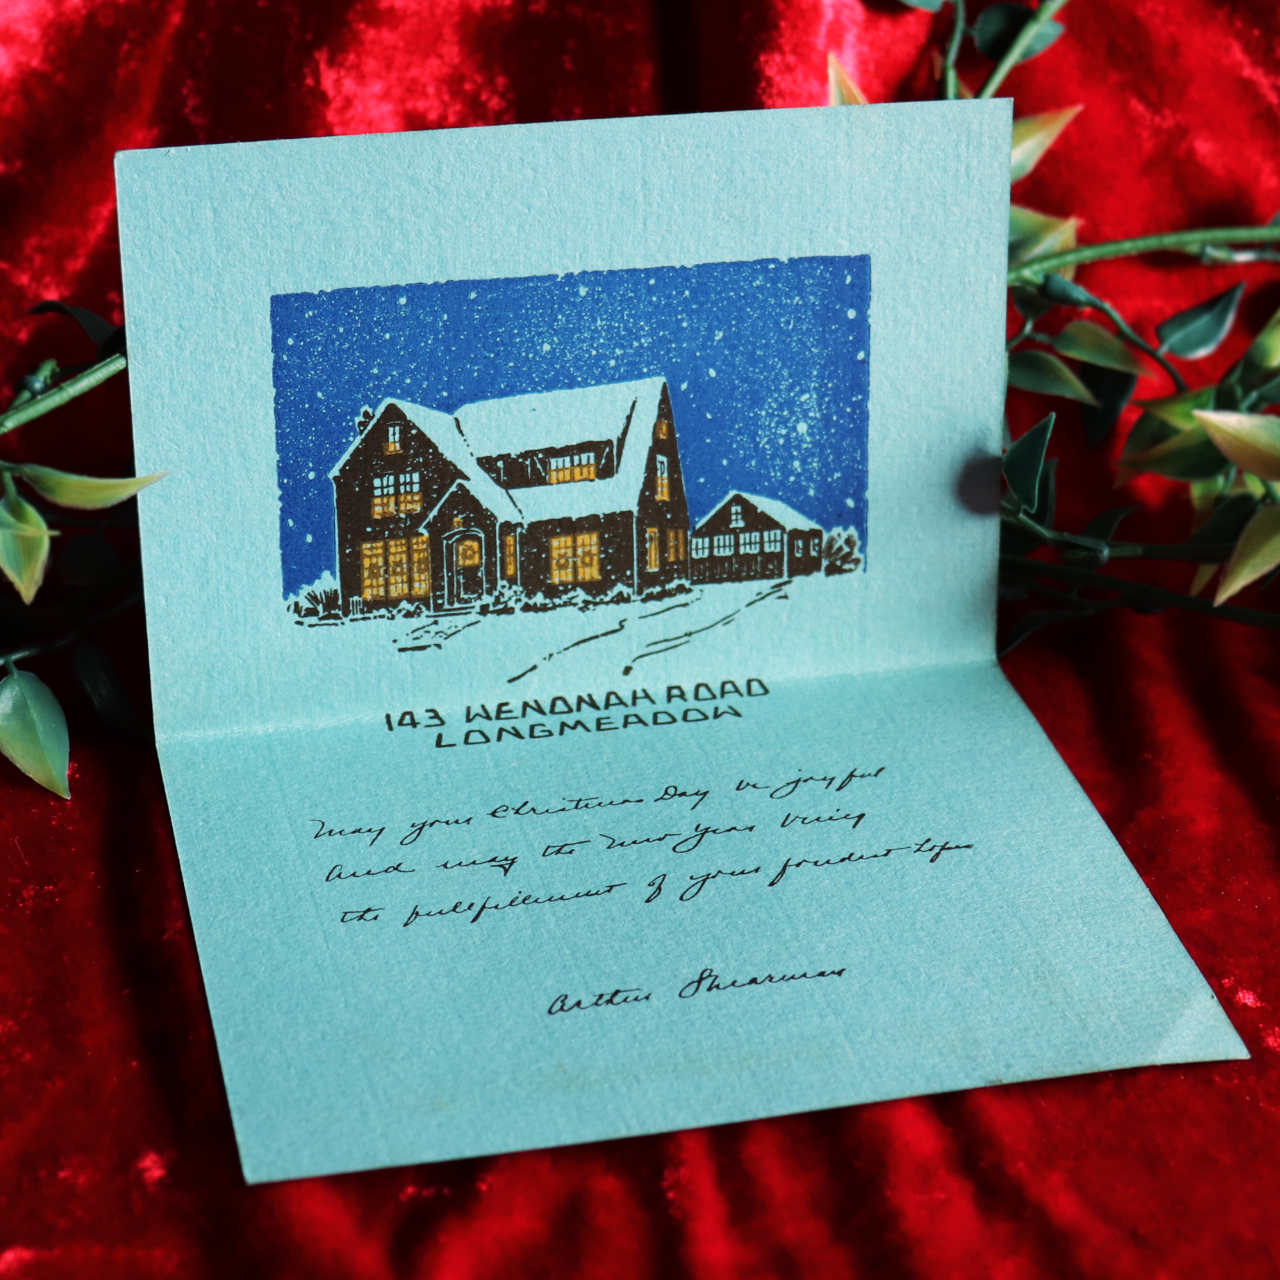 143 WENONAH ROAD
LONGMEADOW
May your Christmas Day be joyful
And may the New Year bring
the fullfillment of your fondest hopes
Arthur Shearman